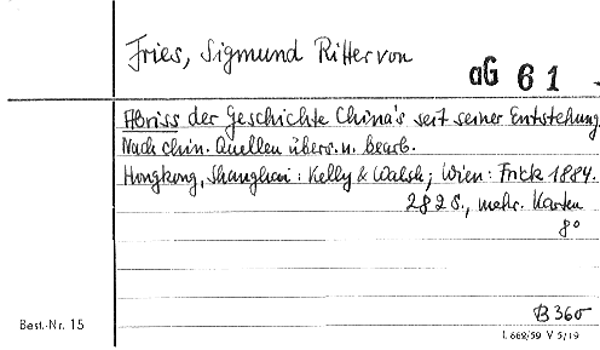 Fries, Sigmund Ritter von
aG 61
Abriss der Geschichte China's seit seiner Entstehung.
Nach chin. Quellen übers. u. bearb.
Hongkong, Shanghai: Kelly & Walsh; Wien: Frick 1884.
282 S., mehr. Karten
8°
B 360
Best.-Nr. 15
L 662/59 V 5/19